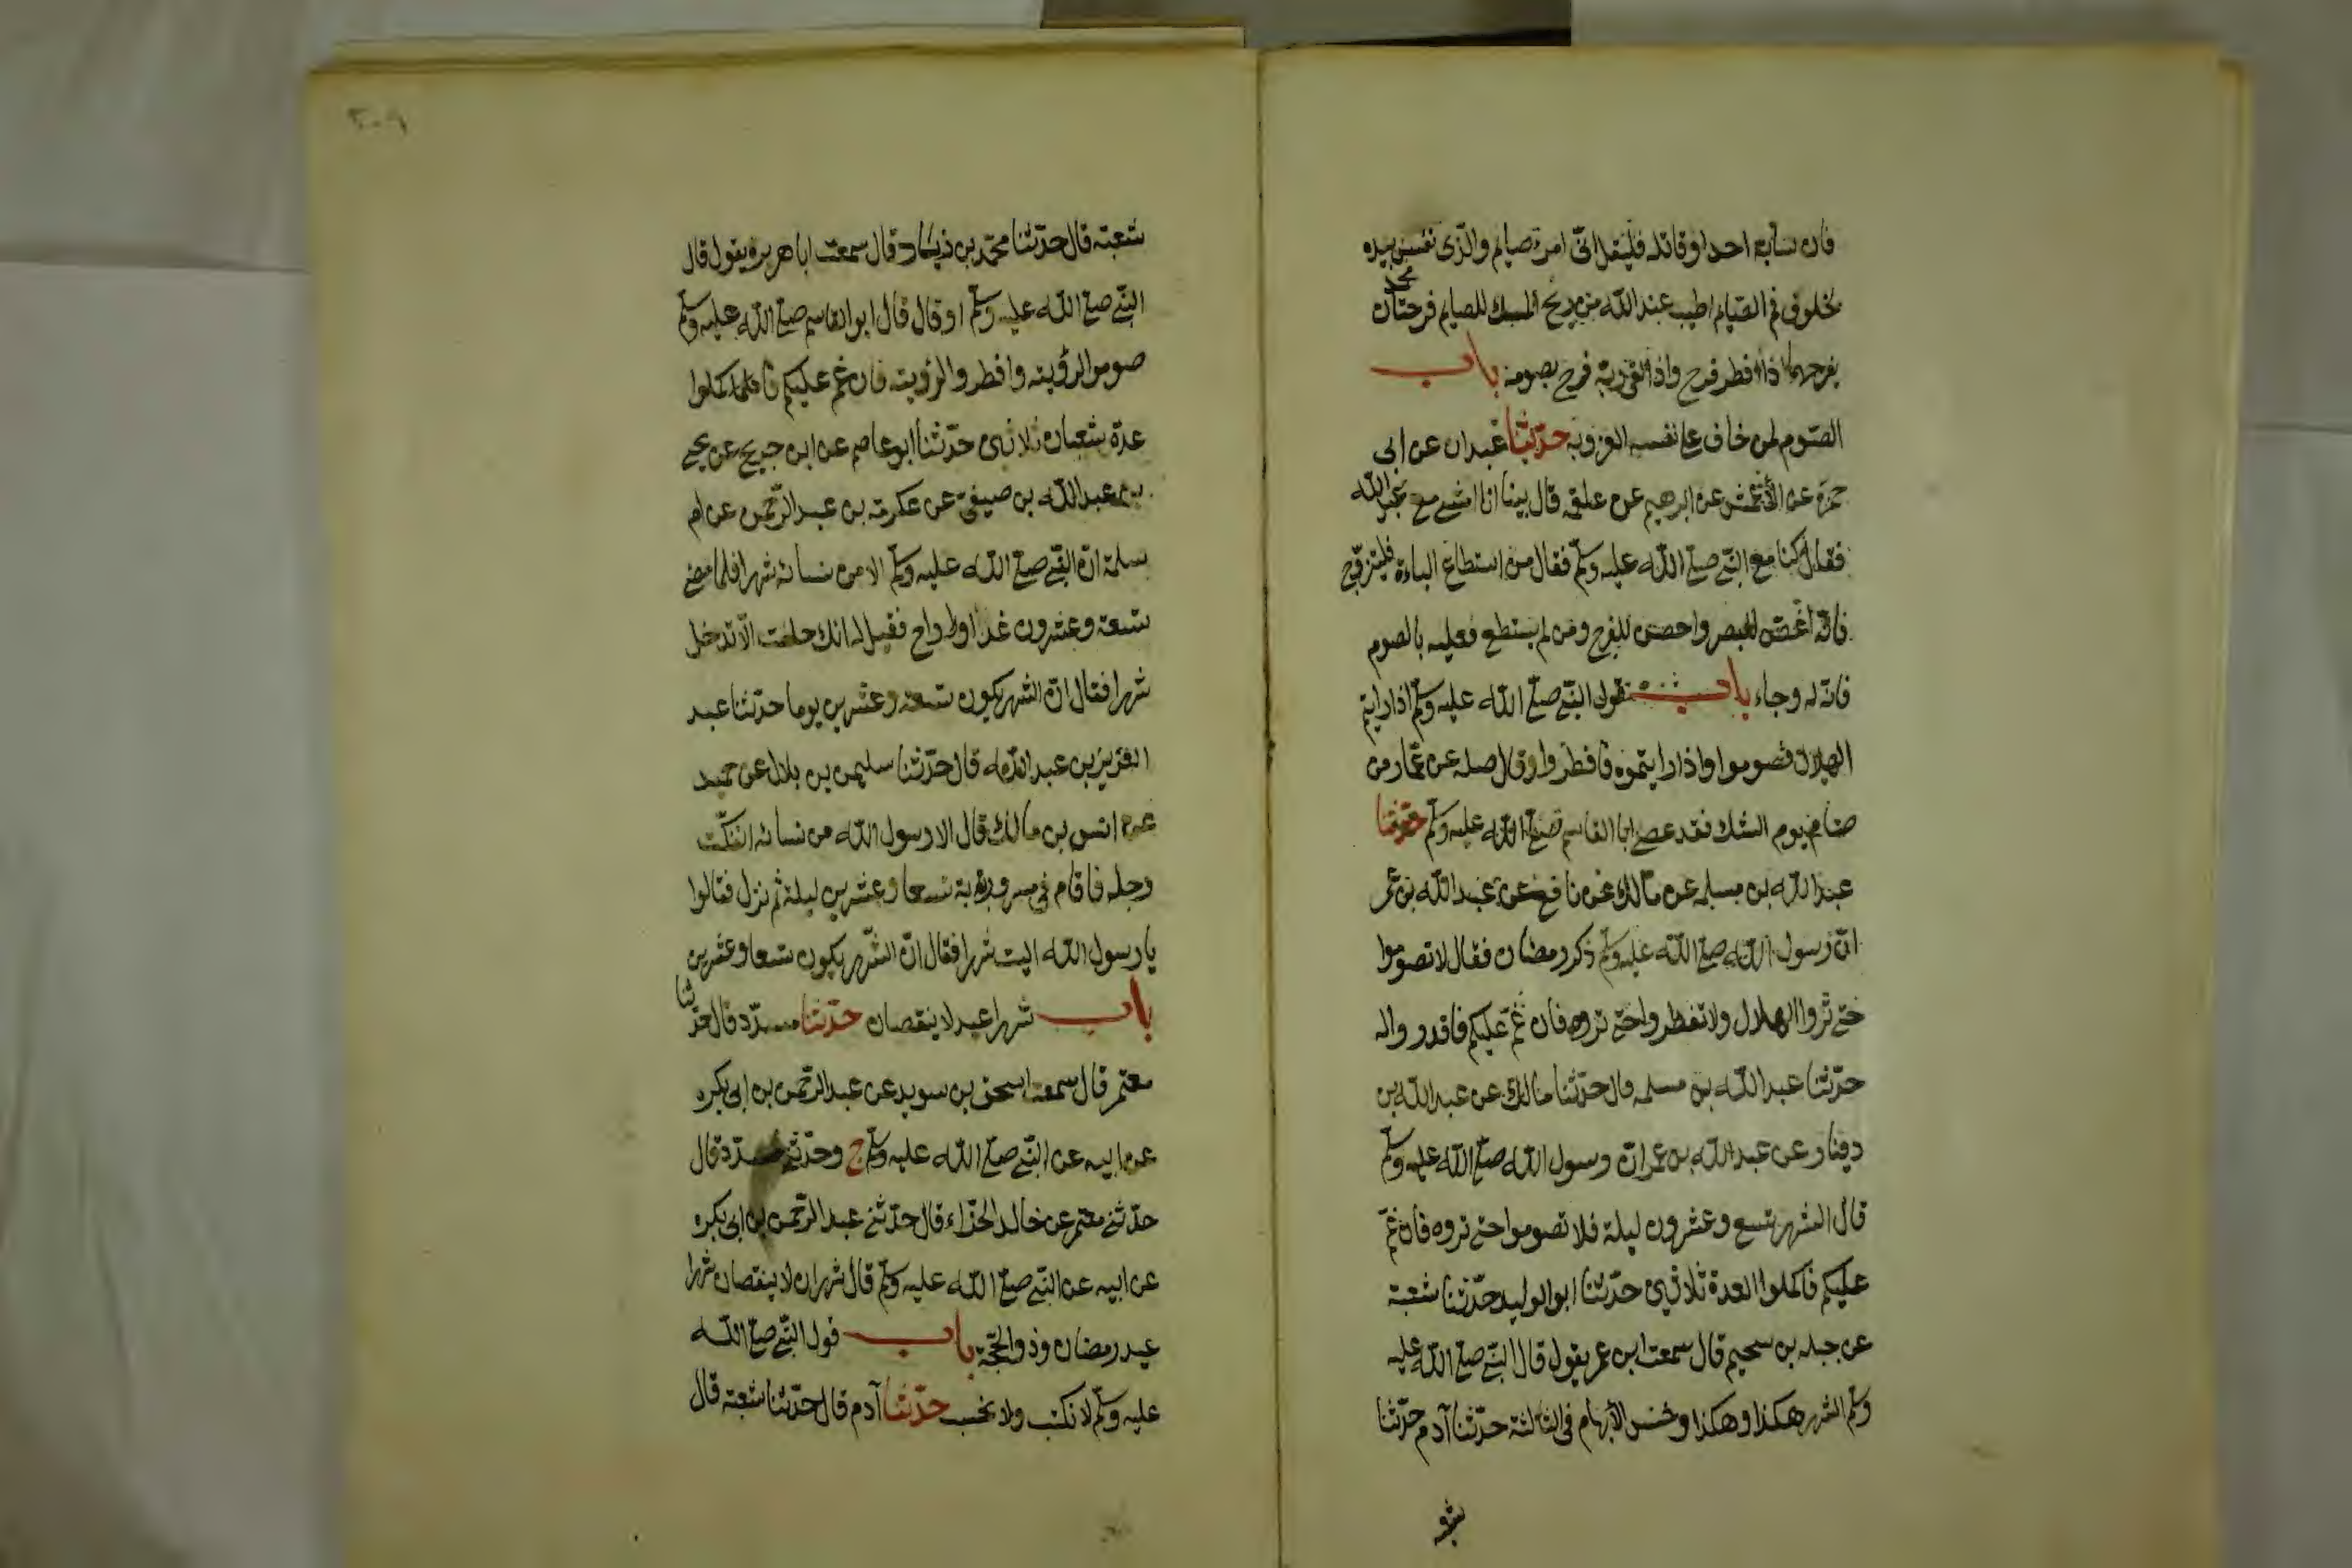 فان سابه احد او قاتله فليقل انى امرء صيام والذى نفس محمد بيده
لخلوف فم الصيام اطيب عند الله من ريح المسك للصيام فرحتان
يفرحهما اذا افطر فرح واذا لقى ربه فرح بصومه باب
الصوم لمن خاف على نفسه العزوبة حدثنا عبدان عن ابى
حمزة عن الأعمش عن ابرهيم عن علقمة قال بينا انا امشى مع عبد الله
فقال كنا مع النبى صلى الله عليه وسلم فقال من استطاع الباءة فليتزوج
فانه اغض للبصر واحصن للفرج ومن لم يستطع فعليه بالصوم
فانه له وجاء باب قول النبى صلى الله عليه وسلم اذا رايتم
الهلال فصوموا واذا رايتموه فافطروا وقال صله عن عمار من
صام يوم الشك فقد عصى ابا القاسم صلى الله عليه وسلم حدثنا
عبد الله بن مسلمه عن مالك عن نافع عن عبد الله بن عمر
ان رسول الله صلى الله عليه وسلم ذكر رمضان فقال لا تصوموا
حتى تروا الهلال ولا تفطروا حتى تروه فان غم عليكم فاقدروا له
حدثنا عبد الله بن مسلمه قال حدثنا مالك عن عبد الله بن
دينار عن عبد الله بن عمر ان رسول الله صلى الله عليه وسلم
قال الشهر تسع وعشرون ليلة فلا تصوموا حتى تروه فان غم
عليكم فاكملوا العدة ثلاثين حدثنا ابو الوليد حدثنا شعبة
عن جبله بن سحيم قال سمعت ابن عمر يقول قال النبى صلى الله عليه
وسلم الشهر هكذا وهكذا وخنس الأبهام فى الثالثة حدثنا آدم حدثنا
٢٠٩
شعبة قال حدثنا محمد بن زياد قال سمعت ابا هريره يقول قال
النبى صلى الله عليه وسلم او قال قال ابو القاسم صلى الله عليه وسلم
صوموا لرؤيته وافطروا لرؤيته فان غم عليكم فاكملوا
عدة شعبان ثلاثين حدثنا ابو عاصم عن ابن جريج عن يحيى
بن عبد الله بن صيفى عن عكرمة بن عبد الرحمن عن ام
سلمة ان النبى صلى الله عليه وسلم الا من نسائه شهرا فلما مضى
تسعة وعشرون غدا او راح فقيل له انك حلفت الا تدخل
شهرا فقال ان الشهر يكون تسعة وعشرين يوما حدثنا عبد
العزيز بن عبد الله قال حدثنا سليمن بن بلال عن حميد
عن انس بن مالك قال الا رسول الله من نسائه انفكت
رجله فاقام فى مشربة تسعا وعشرين ليلة ثم نزل فقالوا
يا رسول الله اليت شهرا فقال ان الشهر يكون تسعا وعشرين
باب شهرا عيد لا ينقصان حدثنا مسدد قال حدثنا
معتمر قال سمعت اسحق بن سويد عن عبد الرحمن بن ابى بكره
عن ابيه عن النبى صلى الله عليه وسلم ح وحدثنى مسدد قال
حدثنى معتمر عن خالد الحذاء قال حدثنى عبد الرحمن بن ابى بكره
عن ابيه عن النبى صلى الله عليه وسلم قال شهران لا ينقصان شهرا
عيد رمضان وذو الحجة باب قول النبى صلى الله
عليه وسلم لا نكتب ولا نحسب حدثنا آدم قال حدثنا شعبة قال